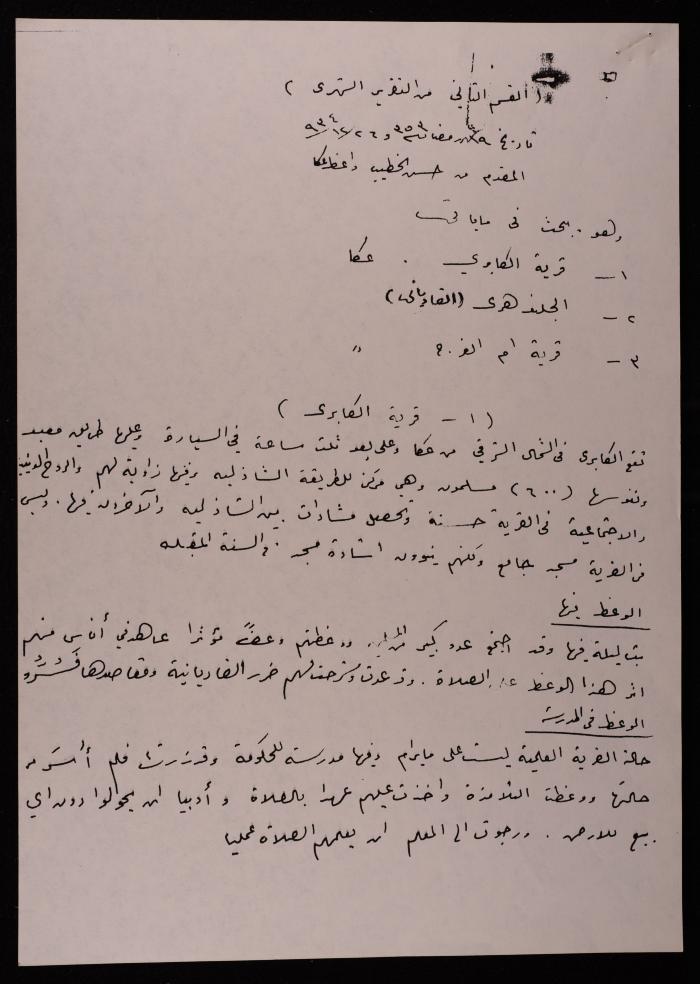 ( القسم الثاني من التقرير الشهري )
تاريخ ١٩ رمضان ٣٥٣ و ٢٦/١٢/٩٣٤
المقدم من حسن الخطيب واعظ عكا
وهو يبحث في ما يأتي
١ـ قرية الكابري . عكا
٢ـ الجلندهري (القادياني)
٣ـ قرية ام الفرج "
( ١ـ قرية الكابري )
تقع الكابري في الشمال الشرقي من عكا وعلى بعد ثلث ساعة في السيارة وعليها طريق معبد
ونفوسها (٦٠٠) مسلمون وهي مركز للطريقة الشاذلية وفيها زاوية لهم والروح الدينية
والاجتماعية في القرية حسنة وتحصل مشادات بين الشاذلية والآخرين فيها . وليس
في القرية مسجد جامع ولكنهم ينوون اشادة مسجد في السنة المقبلة
الوعظ فيها
بت ليلة فيها وقد اجتمع عدد كبير ووعظتهم وعظاً مؤثرا عاهدني أناس منهم
اثر هذا الوعظ على الصلاة . وقد عدت وشرحت لهم ضرر القاديانية ومقاصدها فَسُرُّوا
الوعظ في المدرسة
حالة القرية العلمية ليست على ما يرام وفيها مدرسة للحكومة وقد زرتها فلم أُسَر من
حالتها ووعظت التلامذة واخذت عليهم عهدا بالصلاة و أدبيا ان يحولوا دون اي
بيع للارض . ورجوت الى المعلم ان يعلمهم الصلاة عمليا